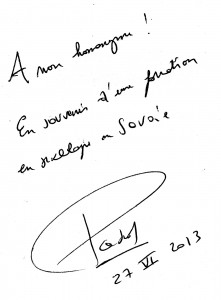 A mon homonyme !
En souvenir d'une formation
en                en Savoie
27 VI 2013